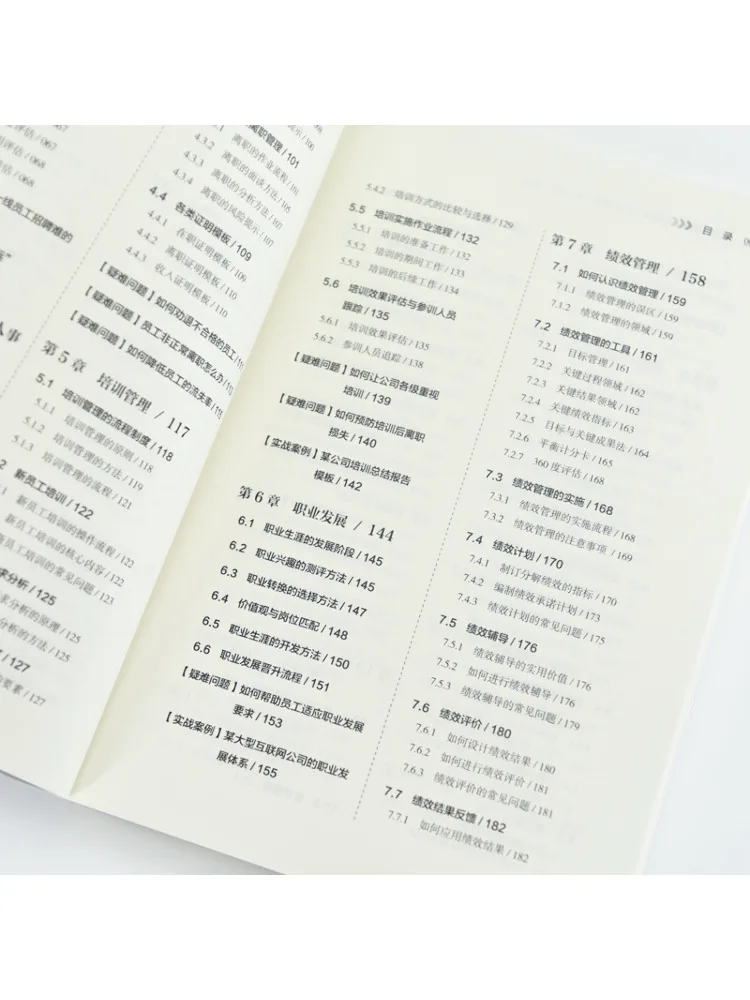 067
评估/068
068
一线员工招聘难的
人事
离职管理/101
4.3.1 离职的作业流程/101
4.3.2 离职的面谈方法/105
4.3.3 离职的分析方法/105
4.3.4 离职的风险提示/107
4.4 各类证明模板/109
4.4.1 在职证明模板/109
4.4.2 离职证明模板/110
4.4.3 收入证明模板/110
【疑难问题】如何劝退不合格的员工
【疑难问题】员工非正常离职怎么办
【疑难问题】如何降低员工的流失率
第5章 培训管理/117
5.1 培训管理的流程制度/118
5.1.1 培训管理的原则/118
5.1.2 培训管理的方法/119
5.1.3 培训管理的流程/121
2 新员工培训/122
新员工培训的操作流程/122
新员工培训的核心内容/122
新员工培训的常见问题/123
求分析/125
求分析的原理/125
分析的方法/125
/127
要素/127
5.4.2 培训方式的比较与选择/129
5.5 培训实施作业流程/132
5.5.1 培训的准备工作/132
5.5.2 培训的期间工作/133
5.5.3 培训的后续工作/134
5.6 培训效果评估与参训人员
跟踪/135
5.6.1 培训效果评估/135
5.6.2 参训人员追踪/138
【疑难问题】如何让公司各级重视
培训/139
【疑难问题】如何预防培训后离职
损失/140
【实战案例】某公司培训总结报告
模板/142
第6章 职业发展/144
6.1 职业生涯的发展阶段/145
6.2 职业兴趣的测评方法/145
6.3 职业转换的选择方法/147
6.4 价值观与岗位匹配/148
6.5 职业生涯的开发方法/150
6.6 职业发展晋升流程/151
【疑难问题】如何帮助员工适应职业发展
要求/153
【实战案例】某大型互联网公司的职业发
展体系/155
目录
第7章 绩效管理/158
7.1 如何认识绩效管理/159
7.1.1 绩效管理的误区/159
7.1.2 绩效管理的领域/159
7.2 绩效管理的工具/161
7.2.1 目标管理/161
7.2.2 关键过程领域/162
7.2.3 关键结果领域/162
7.2.4 关键绩效指标/163
7.2.5 目标与关键成果法/164
7.2.6 平衡计分卡/165
7.2.7 360度评估/168
7.3 绩效管理的实施/168
7.3.1 绩效管理的实施流程/168
7.3.2 绩效管理的注意事项/169
7.4 绩效计划/170
7.4.1 制订分解绩效的指标/170
7.4.2 编制绩效承诺计划/173
7.4.3 绩效计划的常见问题/175
7.5 绩效辅导/176
7.5.1 绩效辅导的实用价值/176
7.5.2 如何进行绩效辅导/176
7.5.3 绩效辅导的常见问题/179
7.6 绩效评价/180
7.6.1 如何设计绩效结果/180
7.6.2 如何进行绩效评价/181
7.6.3 绩效评价的常见问题/181
7.7 绩效结果反馈/182
7.7.1 如何应用绩效结果/182